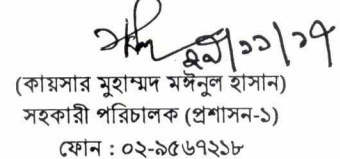 ২৯/১১/১৭
(কায়সার মুহাম্মদ মঈনুল হাসান)
সহকারী পরিচালক (প্রশাসন-১)
ফোন : ০২-৯৫৬৭২১৮